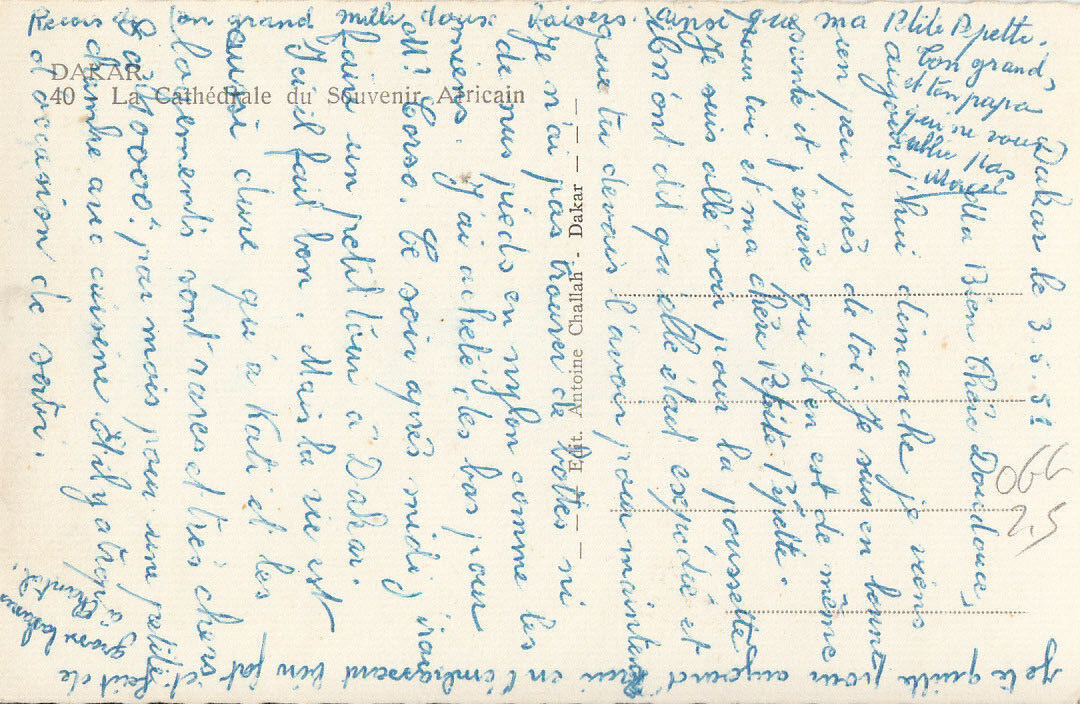 DAKAR
40 - La Cathédrale du Souvenir Africain
Edit. Antoine Challah - Dakar
Dakar le 3.5.52
Ma Bien Chère Doudouce,
aujourd'hui dimanche je viens
un peu près de toi. Je suis en bonne
santé et j'espère qu'il en est de même
pour toi et ma chère Ptite Pépette.
Je suis allé voir pour la poussette
ils m'ont dit qu'elle était expédié et
que tu devais l'avoir pour maintenant
Je n'ai pas trouver de bottes ni
de nus pieds en nylon comme les
miens. J'ai acheté des bas pour
M! Corso. Ce soir après midi j'irai
faire un petit tour a Dakar.
Il fait bon. Mais la vie est
aussi dure qu'a Kati et les
logements sont rares et très chers
par mois pour une petite
chambre avec cuisine et il y a trop
d'occasion de sortir.
Je te quitte pour aujourd'hui en t'embrassant bien fort et
Reçois de ton grand mille doux baisers. ainsi que ma Ptite Pépette.
Ton grand,
et ton papa
qui ne vous
oublie pas
066
2.5